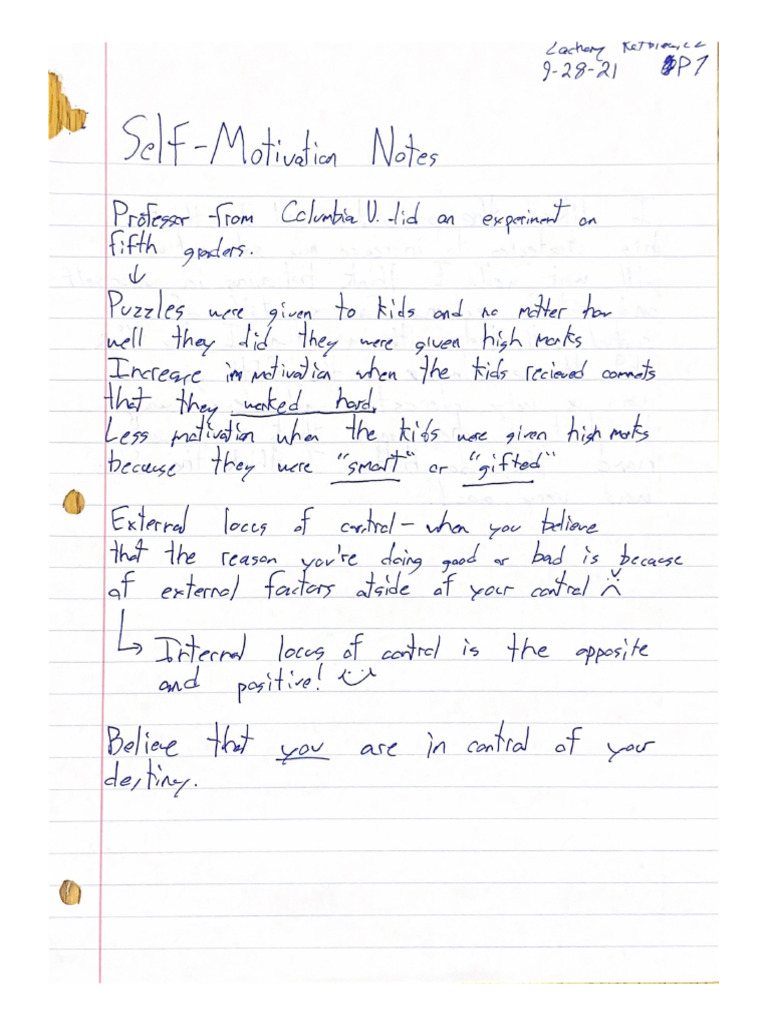 Zachary
9-28-21 P7
Self-Motivation Notes
Professor from Columbia U. did an experiment on
fifth graders.
↓
Puzzles were given to kids and no matter how
well they did they were given high marks
Increase in motivation when the kids recieved comments
that they worked hard.
Less motivation when the kids were given high marks
because they were "smart" or "gifted"
External locus of control - when you believe
that the reason you're doing good or bad is because
of external factors otside of your control
↳ Internal locus of control is the opposite
and positive!
Believe that you are in control of your
destiny.